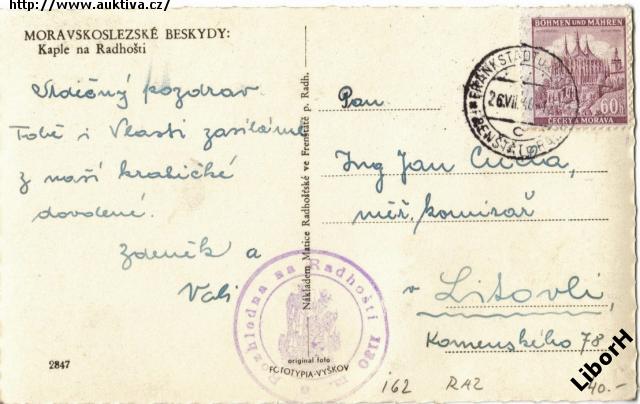 http://www.auktiva.cz/
MORAVSKOSLEZSKÉ BESKYDY:
Kaple na Radhošti
Srdečný pozdrav
Tobě i Vlasti zasíláme
z naší krátké
dovolené.
Zdeněk a
Vali
2847
Nákladem Matice Radhošťské ve Frenštátě p. Radh.
Rozhledna na Radhošti 1130 m.
original foto
FOTOTYPIA-VYŠKOV
BÖHMEN UND MÄHREN
60h
ČECHY A MORAVA
FRANKSTADT
26.VII.
c
Pan
Ing Jan
měř. komisař
v Litovli
Komenského 78
162 RAZ
40.-
LiborH